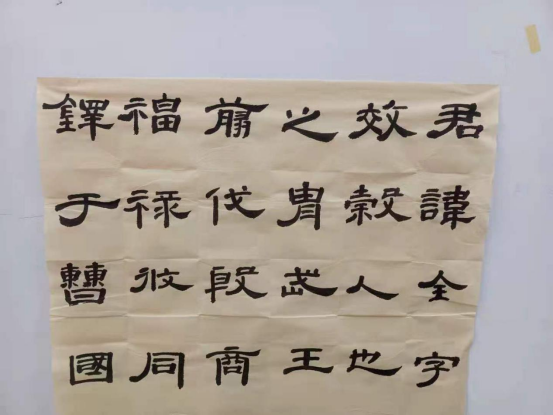 君諱全字
效穀人也
之胄武王
翦伐殷商
福祿攸同
鐸于曹國